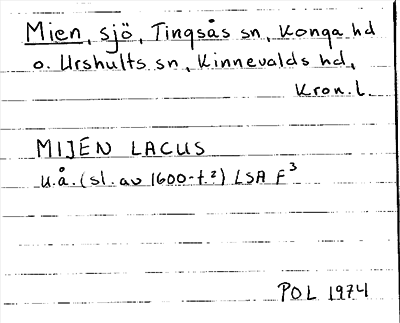 Mien, sjö, Tingsås sn, Konga hd
o. Urshults sn, Kinnevalds hd,
Kron.l.
MIJEN LACUS
u.å. (sl. av 1600-t.?) LSA F³
POL 1974